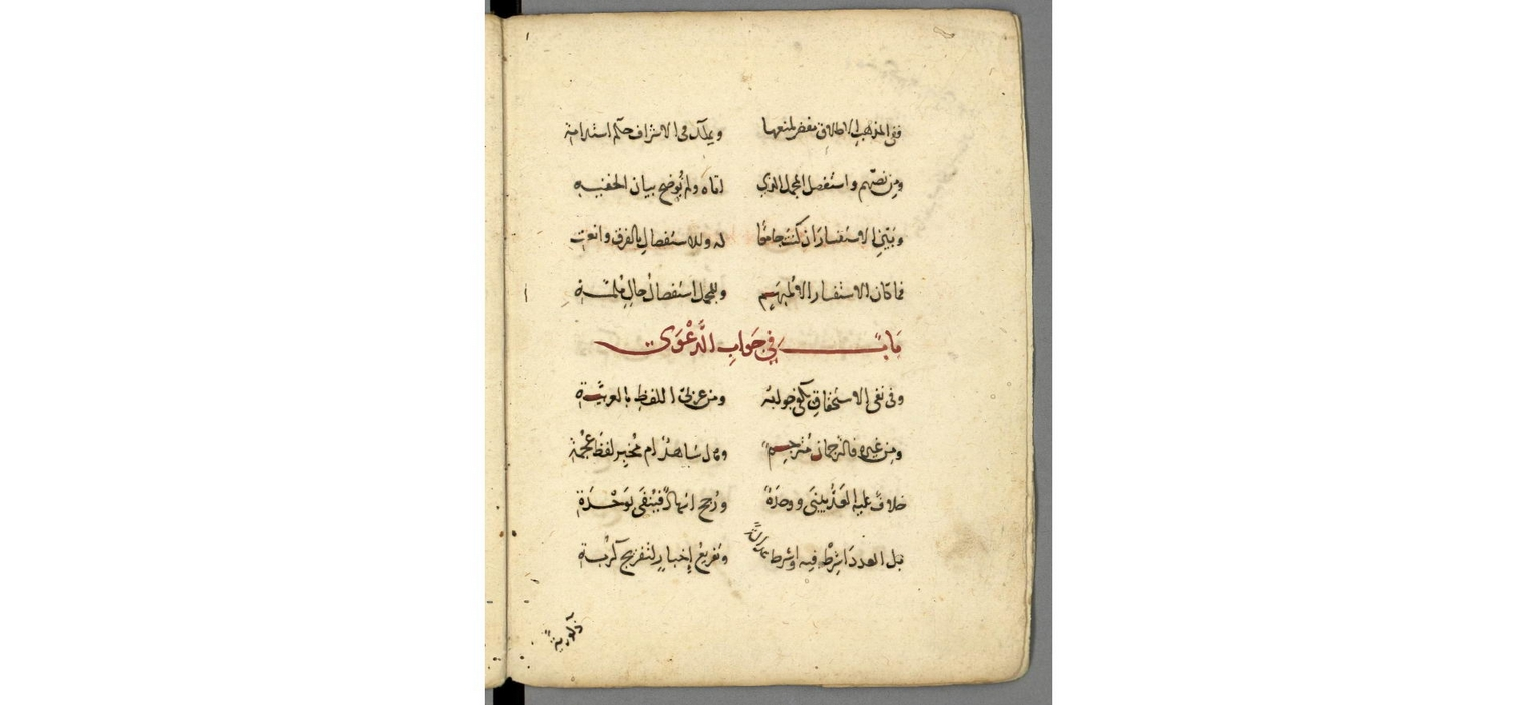 ففي المذهب الاطلاق مفض لمنعها ويملك في الاشراف حكم استدامة
ومن نصهم واستفصل المجمل الذي اتاه ولم يوضح بيان الخفية
وبين الاستفسار ان كنت جامعا له وللاستفصال بالفرق وانعت
فما كان الاستفسار الا لمبهم وللمجمل استفصال حال
باب في جواب الدَّعْوَى
وفي نفي الاستحقاق يكفي جوابه ومن عربي اللفظ بالعربية
ومن غيره فالترجمان مترجم وهل شاهد ام مخبر لفظ عجمة
خلاف عليه ووحدة ورجح اشهاد فينفى بوحدة
قبل العدد اشرط فيه وشرط عدالة وتفريع إخبار لتفريج كربة
ذكورية